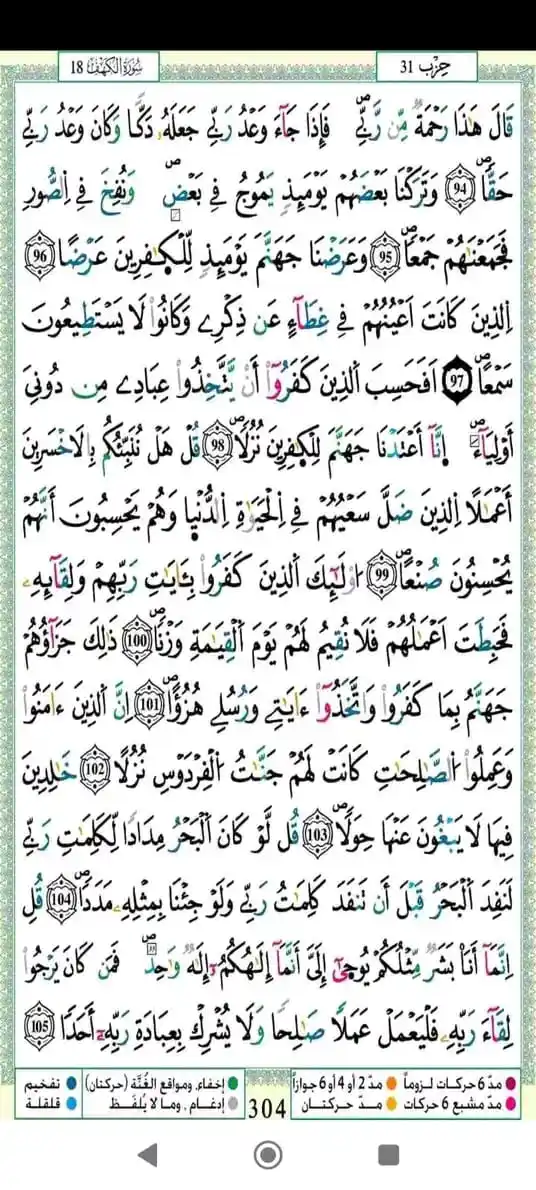 سُورَةُ الْكَهْفِ 18
حِزْب 31
قَالَ هَٰذَا رَحْمَةٌ مِّن رَّبِّےۖ فَإِذَا جَآءَ وَعْدُ رَبِّے جَعَلَهُۥ دَكّاٗ وَكَانَ وَعْدُ رَبِّے
حَقّاٗۖ 94 وَتَرَكْنَا بَعْضَهُمْ يَوْمَئِذٖ يَمُوجُ فِے بَعْضٖۖ وَنُفِخَ فِے اِ۬لصُّورِ
فَجَمَعْنَٰهُمْ جَمْعاٗۖ 95 وَعَرَضْنَا جَهَنَّمَ يَوْمَئِذٖ لِّلْكٰ۪فِرِينَ عَرْضاً 96
اِ۬لذِينَ كَانَتَ اَعْيُنُهُمْ فِے غِطَآءٍ عَن ذِكْرِے وَكَانُواْ لَا يَسْتَطِيعُونَ
سَمْعاًۖ 97 اَفَحَسِبَ اَ۬لذِينَ كَفَرُوٓاْ أَنْ يَّتَّخِذُواْ عِبَادِے مِن دُونِيَ
أَوْلِيَآءَۖ انَّآ أَعْتَدْنَا جَهَنَّمَ لِلْكٰ۪فِرِينَ نُزُلاٗۖ 98 قُلْ هَلْ نُنَبِّئُكُم بِالَاخْسَرِينَ
أَعْمَٰلاً اِ۬لذِينَ ضَلَّ سَعْيُهُمْ فِے اِ۬لْحَيَوٰةِ اِ۬لدُّنْي۪ا وَهُمْ يَحْسِبُونَ أَنَّهُمْ
يُحْسِنُونَ صُنْعاًۖ 99 ا۟وْلَٰٓئِكَ اَ۬لذِينَ كَفَرُواْ بِـَٔايَٰتِ رَبِّهِمْ وَلِقَآئِهِۦ
فَحَبِطَتَ اَعْمَٰلُهُمْ فَلَا نُقِيمُ لَهُمْ يَوْمَ اَ۬لْقِيَٰمَةِ وَزْناٗۖ 100 ذَٰلِكَ جَزَآؤُهُمْ
جَهَنَّمُ بِمَا كَفَرُواْ وَاتَّخَذُوٓاْ ءَايَٰتِے وَرُسُلِے هُزُؤاًۖ 101 اِنَّ اَ۬لذِينَ ءَامَنُواْ
وَعَمِلُواْ اُ۬لصَّٰلِحَٰتِ كَانَتْ لَهُمْ جَنَّٰتُ اُ۬لْفِرْدَوْسِ نُزُلاً 102 خَٰلِدِينَ
فِيهَا لَا يَبْغُونَ عَنْهَا حِوَلاٗۖ 103 قُل لَّوْ كَانَ اَ۬لْبَحْرُ مِدَاداٗ لِّكَلِمَٰتِ رَبِّے
لَنَفِدَ اَ۬لْبَحْرُ قَبْلَ أَن تَنفَدَ كَلِمَٰتُ رَبِّے وَلَوْ جِئْنَا بِمِثْلِهِۦ مَدَداٗۖ 104 قُلِ
اِنَّمَآ أَنَا بَشَرٌ مِّثْلُكُمْ يُوح۪يٰٓ إِلَيَّ أَنَّمَآ إِلَٰهُكُمُۥٓ إِلَٰهٌ وَٰحِدٌۖ فَمَن كَانَ يَرْجُواْ
لِقَآءَ رَبِّهِۦ فَلْيَعْمَلْ عَمَلاٗ صَٰلِحاٗ وَلَا يُشْرِكْ بِعِبَادَةِ رَبِّهِۦٓ أَحَداًۖ 105
مدّ 6 حركات لزوماً
مدّ 2 أو 4 أو 6 جوازاً
إخفاء، ومواقع الغُنَّة (حركتان)
تفخيم
مدّ مشبع 6 حركات
مدّ حركتان
إدغام، وما لا يُلفَظ
قلقلة
304